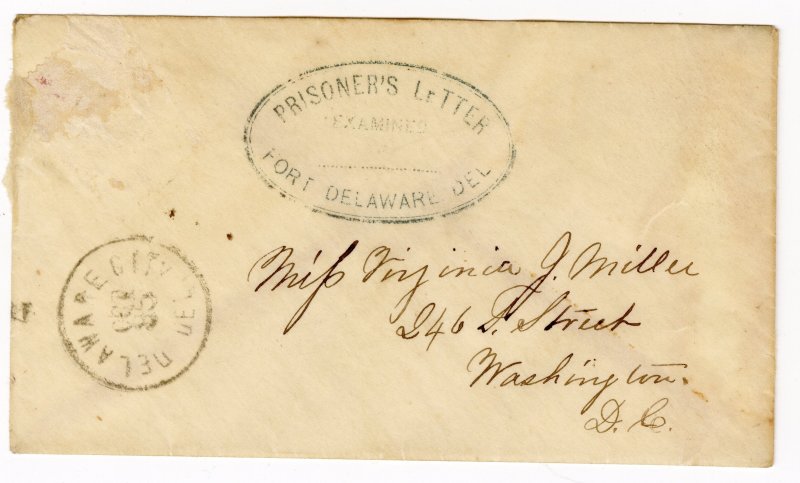 PRISONER'S LETTER
EXAMINED
FORT DELAWARE DEL
DELAWARE CITY DEL
Miss Virginia J. Miller
246 F. Street
Washington.
D. C.